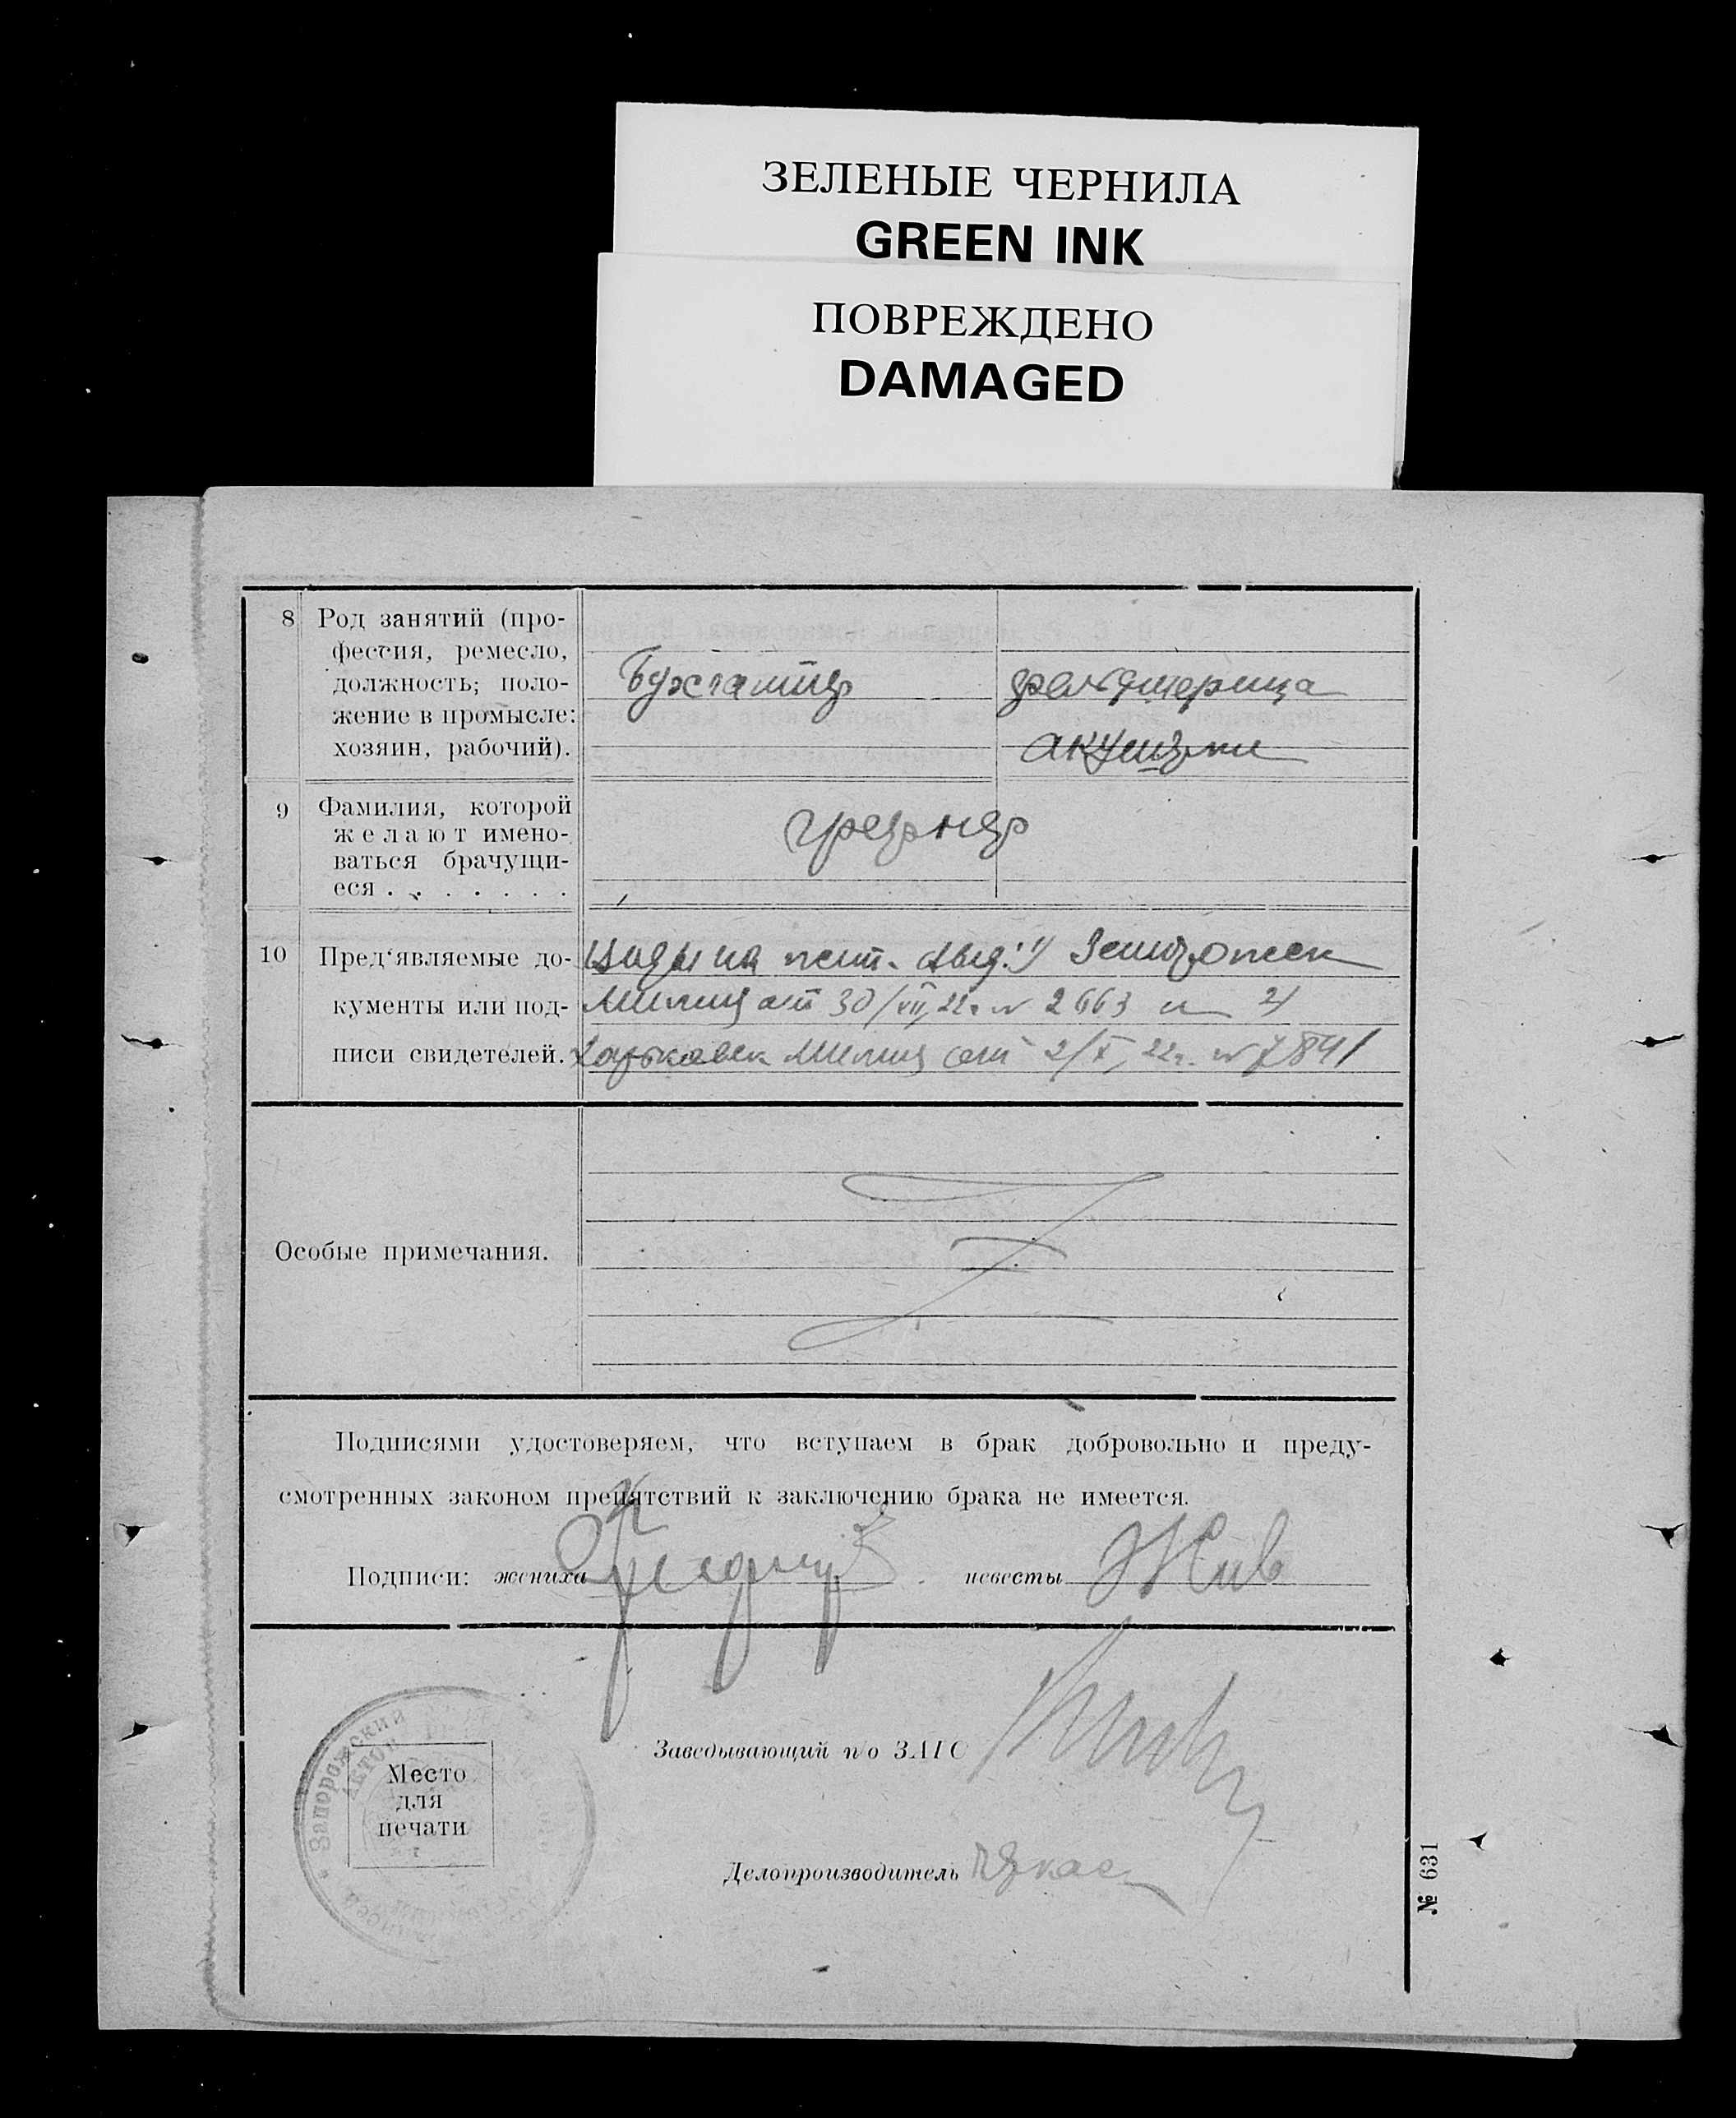 ЗЕЛЕНЫЕ ЧЕРНИЛА
GREEN INK
ПОВРЕЖДЕНО
DAMAGED
8 Род занятий (про-
фессия, ремесло,
должность; поло-
жение в промысле:
хозяин, рабочий).
Бухгалтер
фельдшерица
акушерки
9 Фамилия, которой
желают имено-
ваться брачущи-
еся . . . . . . .
10 Пред‘являемые до-
кументы или под-
писи свидетелей.
Виды на жит. выд. 1/
Милиц от 30/VII 22г. № 2663 и 2/
Харьковск Милиц от 2/X 22г. № 7841
Особые примечания.
Подписями удостоверяем, что вступаем в брак добровольно и преду-
смотренных законом препятствий к заключению брака не имеется.
Подписи: жениха
невесты
Заведывающий п/о ЗАГС
Запорожский
Место
для
печати
Делопроизводитель
№ 631